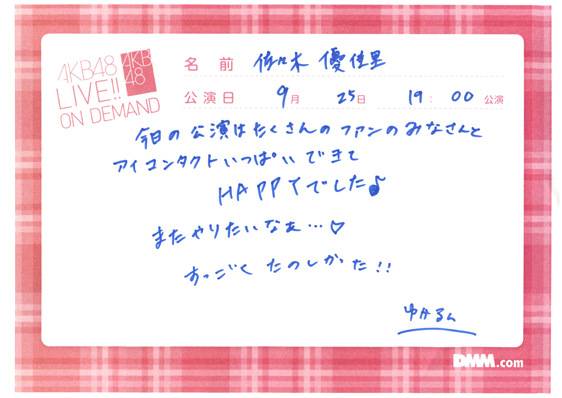 AKB48
LIVE!!
ON DEMAND
AKB
48
名前 佐々木 優佳里
公演日 9月 25日 19:00 公演
今日の公演はたくさんのファンのみなさんと
アイコンタクトいっぱいできて
HAPPYでした♪
またやりたいなぁ…♡
すっごく たのしかった!!
ゆかるん
DMM.com